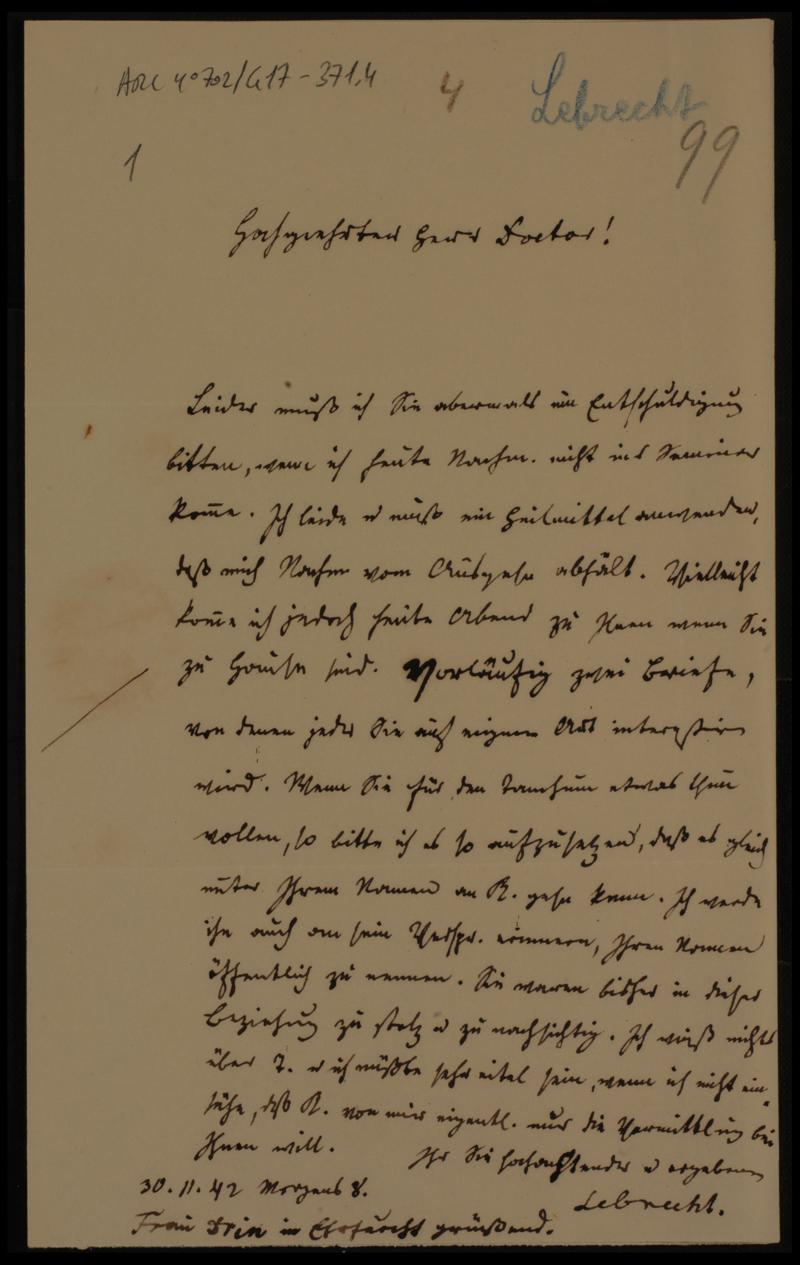 ARC 4° 792/G17-371.4
4
Lebrecht
99
1
Hochgeehrter Herr Doctor!
Leider muß ich Sie abermals um Entschuldigung
bitten, wenn ich heute Nachm. nicht ins Seminar
kom̄e. Ich leide u muß ein Heilmittel anwenden,
daß mich Nachm vom Ausgehn abhält. Vielleicht
kom̄e ich jedoch heute Abend zu Ihnen wenn Sie
zu Hause sind. Vorläufig zwei Briefe,
von denen jeder Sie auf eigene Art interessiren
wird. Wenn Sie für den Tanchum etwas thun
wollen, so bitte ich es so aufzusetzen, daß es gleich
unter Ihrem Namen an R. gehn kann. Ich werde
ihn auch an sein Verspr. erinnern, Ihren Namen
öffentlich zu nennen. Sie waren bisher in dieser
Beziehung zu stolz u zu nachsichtig. Ich weiß nichts
über T. u ich müßte sehr eitel sein, wenn ich nicht ein-
sähe, daß R. von mir eigentl. nur die Vermittlung bei
Ihnen will.
Ihr Sie hochachtender u ergebener
30. 11. 42 Morgens 8.
Lebrecht.
Frau Drin in Ehrfurcht grüßend.